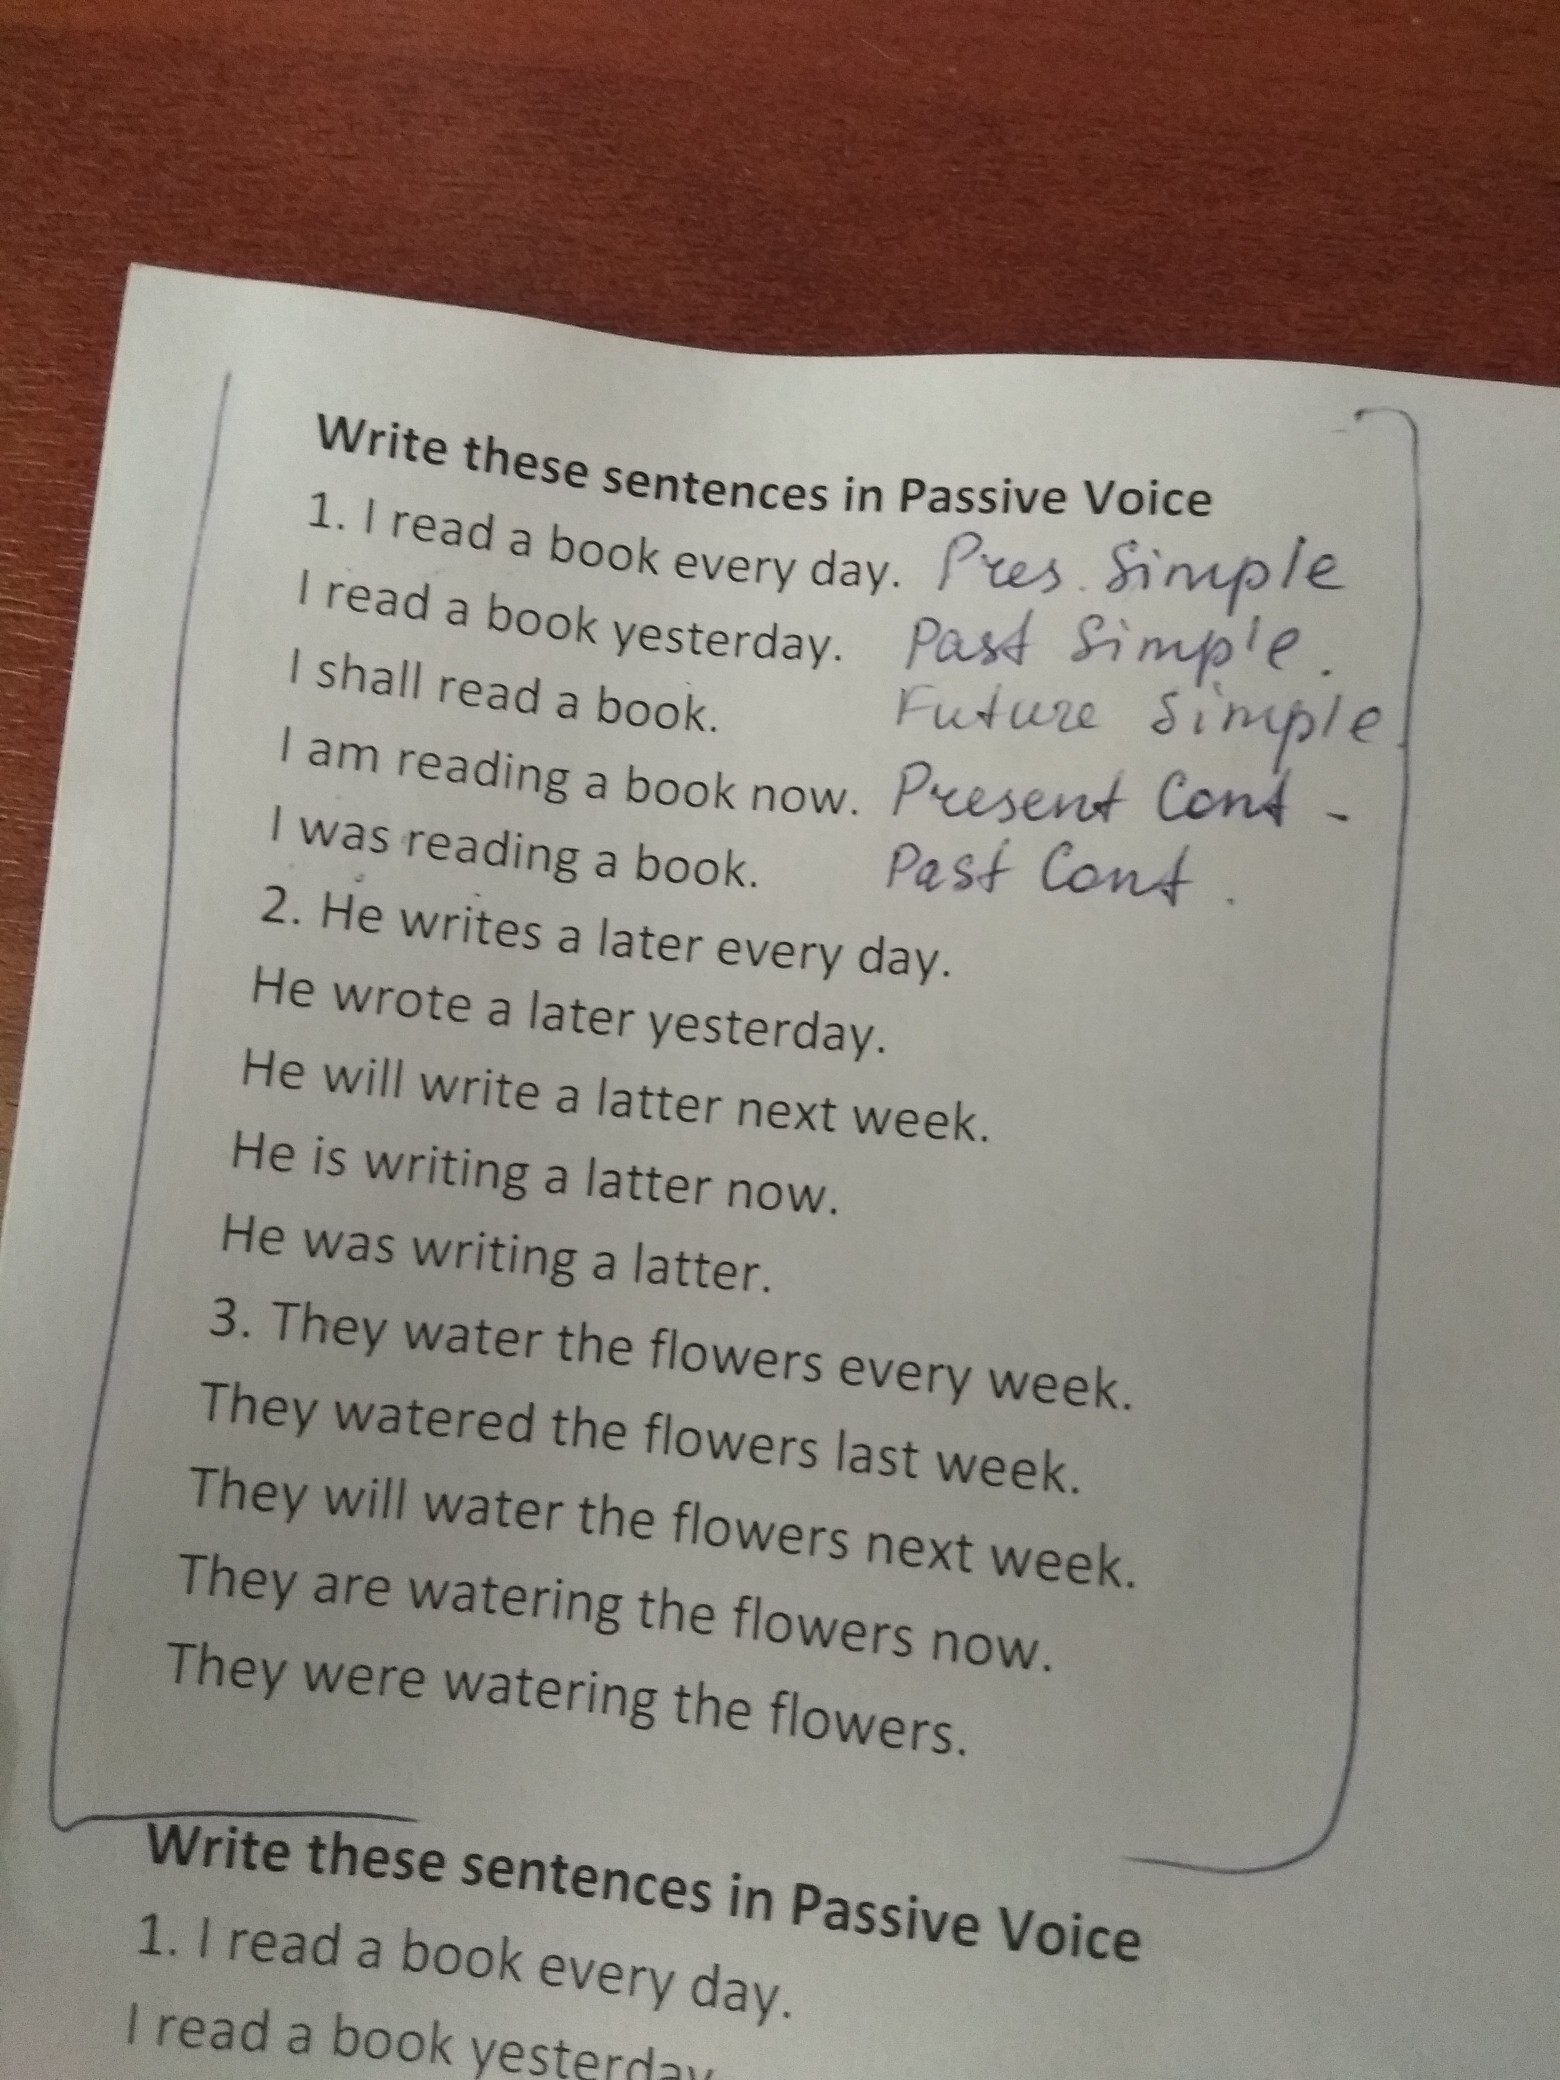 Write these sentences in Passive Voice
1. I read a book every day. Pres. Simple
I read a book yesterday. Past Simple.
I shall read a book. Future Simple.
I am reading a book now. Present Cont -
I was reading a book. Past Cont.
2. He writes a later every day.
He wrote a later yesterday.
He will write a latter next week.
He is writing a latter now.
He was writing a latter.
3. They water the flowers every week.
They watered the flowers last week.
They will water the flowers next week.
They are watering the flowers now.
They were watering the flowers.
Write these sentences in Passive Voice
1. I read a book every day.
I read a book yesterday